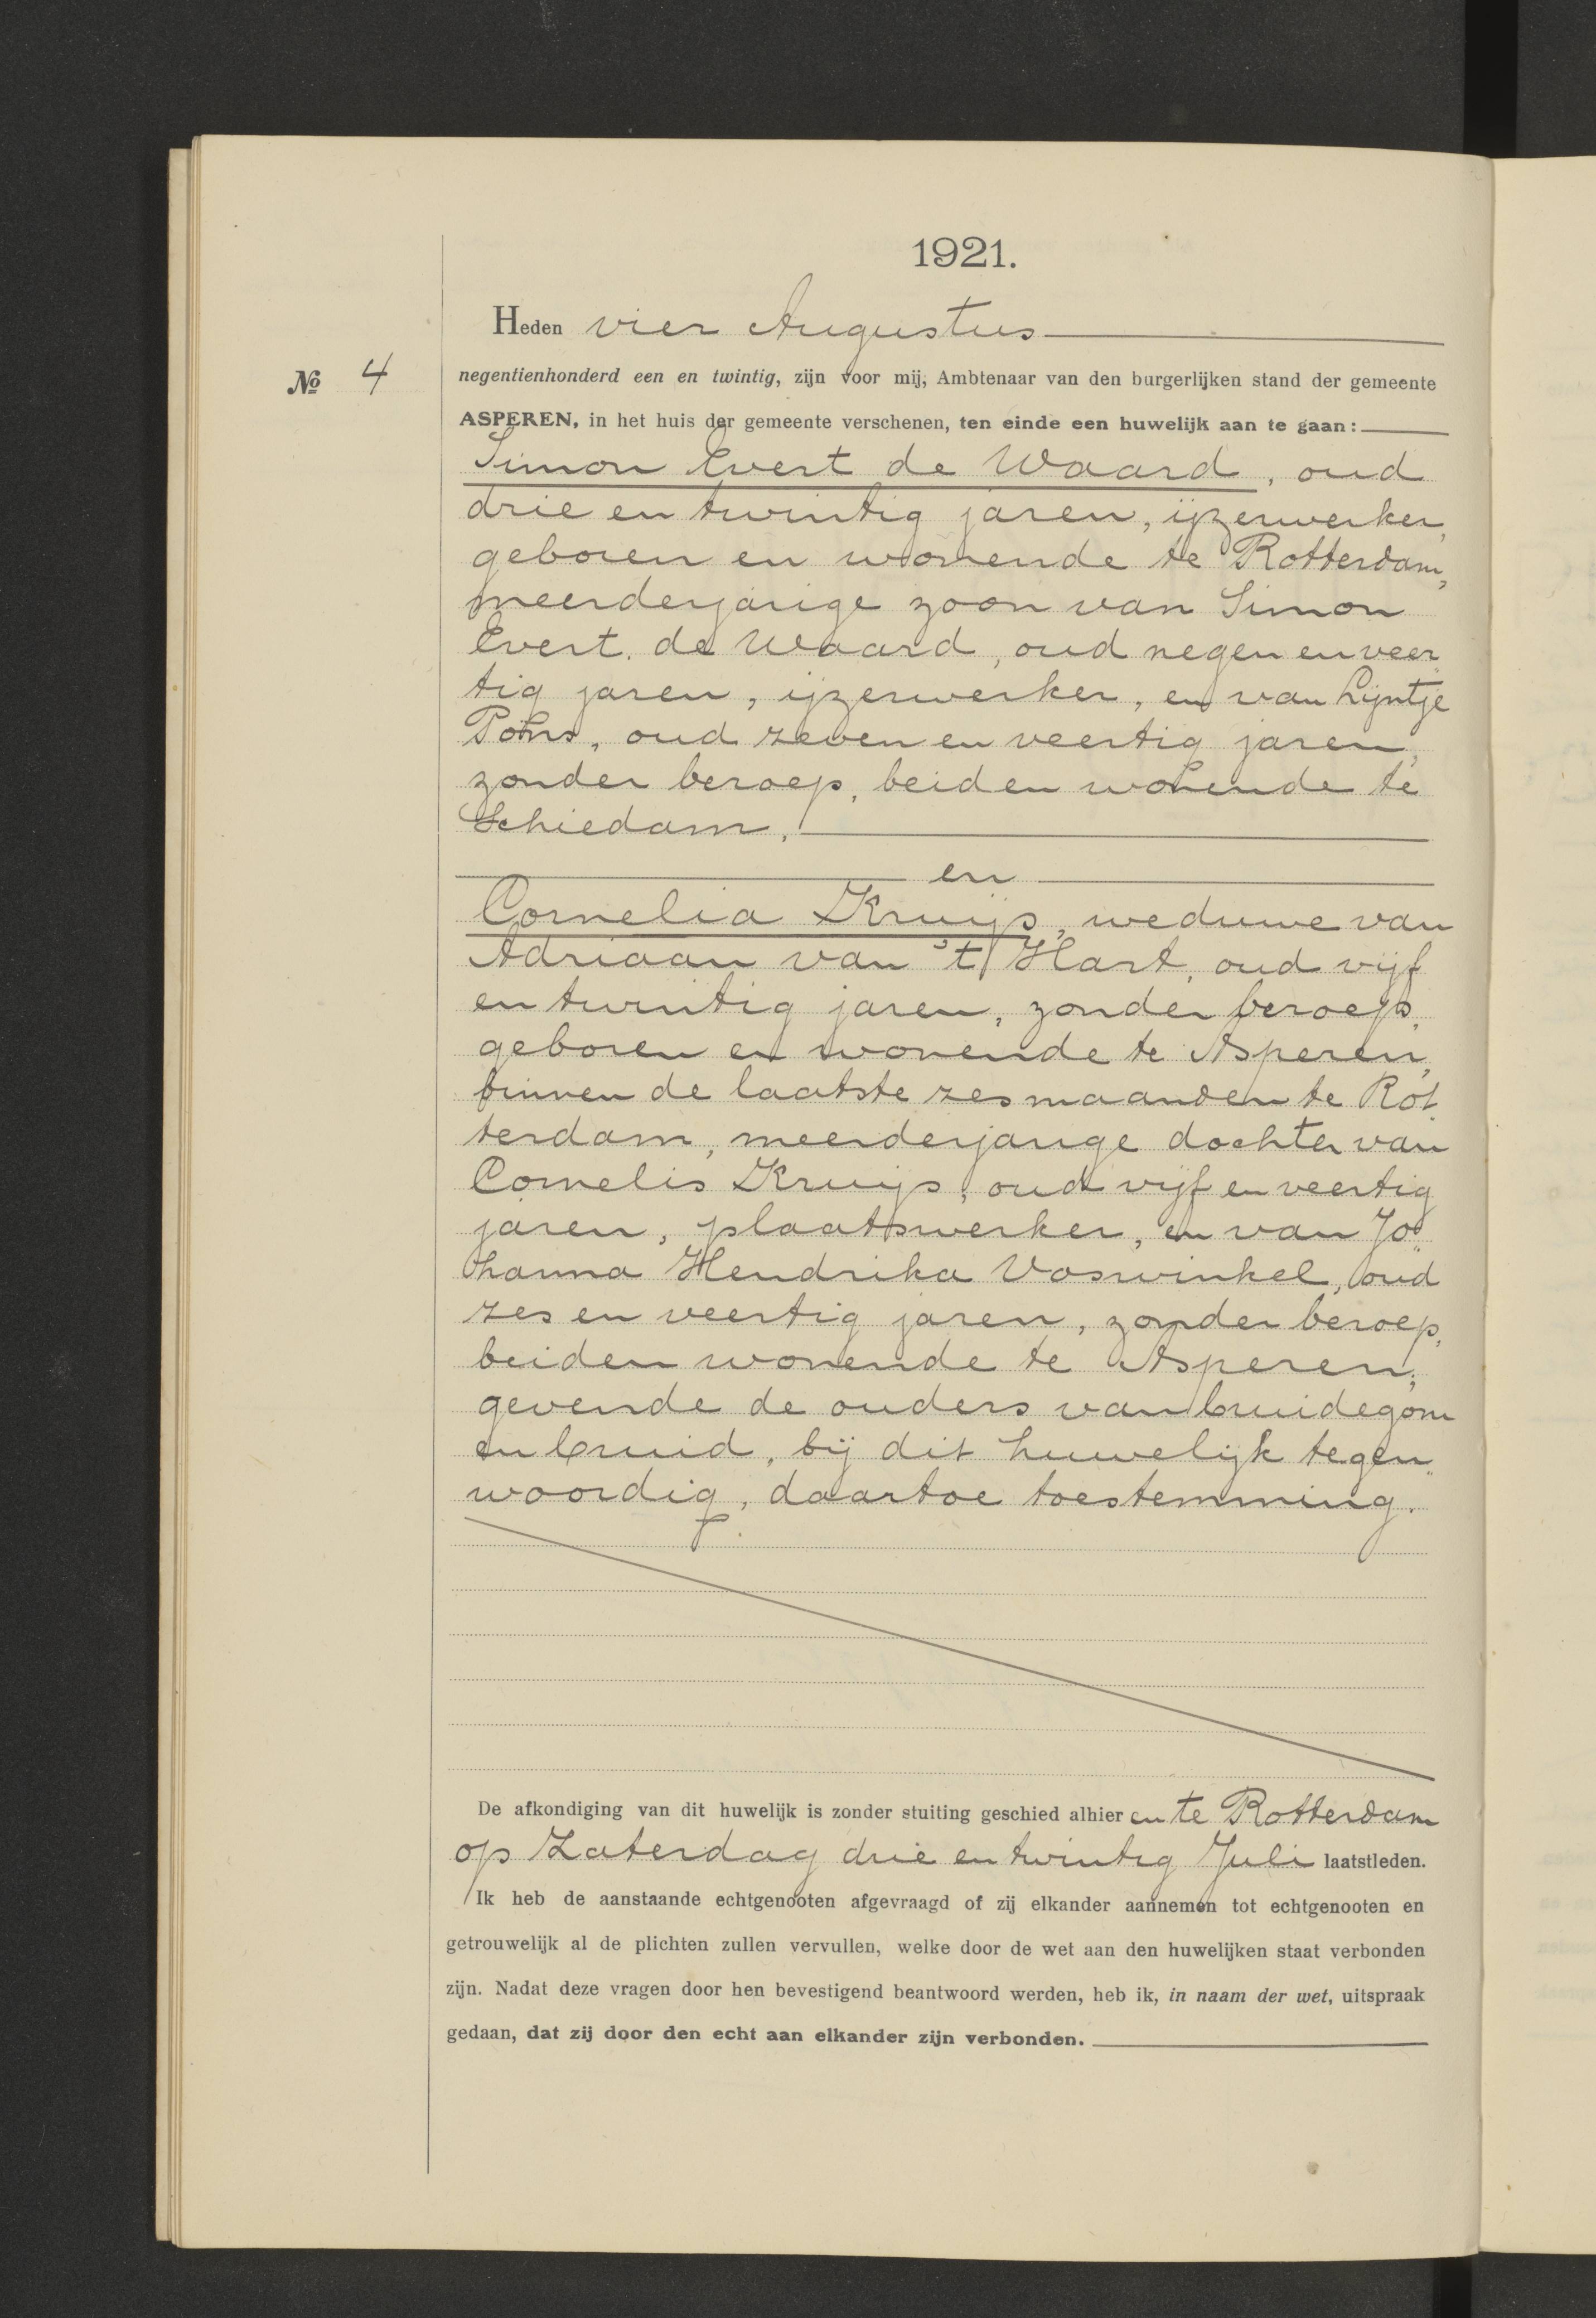 1921.
Heden vier Augustus
№ 4
negentienhonderd een en twintig, zijn voor mij, Ambtenaar van den burgerlijken stand der gemeente
ASPEREN, in het huis der gemeente verschenen, ten einde een huwelijk aan te gaan:
Simon Evert de Waard, oud
drie en twintig jaren, ijzerwerker,
geboren en wonende te Rotterdam,
meerderjarige zoon van Simon
Evert de Waard, oud negen en veer
tig jaren, ijzerwerker, en van Lijntje
Pons, oud zeven en veertig jaren,
zonder beroep, beiden wonende te
Schiedam,
en
Cornelia Kruijs, weduwe van
Adriaan van 't Hart, oud vijf
en twintig jaren, zonder beroep,
geboren en wonende te Asperen,
binnen de laatste zes maanden te Rot
terdam, meerderjarige dochter van
Cornelis Kruijs, oud vijf en veertig
jaren, plaatswerker, en van Jo"
hanna Hendrika Voswinkel, oud
zes en veertig jaren, zonder beroep,
beiden wonende te Asperen;
gevende de ouders van bruidegom
en bruid, bij dit huwelijk tegen"
woordig, daartoe toestemming.
De afkondiging van dit huwelijk is zonder stuiting geschied alhier en te Rotterdam
op Zaterdag drie en twintig Juli laatstleden.
Ik heb de aanstaande echtgenooten afgevraagd of zij elkander aannemen tot echtgenooten en
getrouwelijk al de plichten zullen vervullen, welke door de wet aan den huwelijken staat verbonden
zijn. Nadat deze vragen door hen bevestigend beantwoord werden, heb ik, in naam der wet, uitspraak
gedaan, dat zij door den echt aan elkander zijn verbonden.